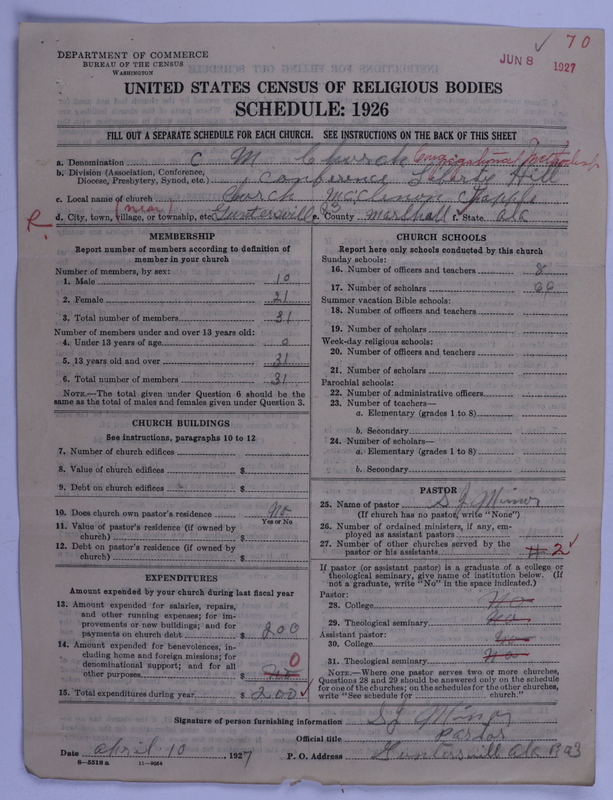 70
JUN 8 1927
DEPARTMENT OF COMMERCE
BUREAU OF THE CENSUS
WASHINGTON
UNITED STATES CENSUS OF RELIGIOUS BODIES
SCHEDULE: 1926
FILL OUT A SEPARATE SCHEDULE FOR EACH CHURCH. SEE INSTRUCTIONS ON THE BACK OF THIS SHEET
a. Denomination C M Church Congregational Methodist
b. Division (Association, Conference,
Diocese, Presbytery, Synod, etc.) Conference Liberty Hill
c. Local name of church Church Chapple
R. d. City, town, (near) village, or township, etc. Guntersville e. County Marshall State Ala
MEMBERSHIP
Report number of members according to definition of
member in your church
Number of members, by sex:
1. Male 10
2. Female 21
3. Total number of members 31
Number of members under and over 13 years old:
4. Under 13 years of age 0
5. 13 years old and over 31
6. Total number of members 31
NOTE.—The total given under Question 6 should be the
same as the total of males and females given under Question 3.
CHURCH BUILDINGS
See instructions, paragraphs 10 to 12
7. Number of church edifices
8. Value of church edifices $
9. Debt on church edifices $
10. Does church own pastor's residence No
Yes or No
11. Value of pastor's residence (if owned by
church) $
12. Debt on pastor's residence (if owned by
church) $
EXPENDITURES
Amount expended by your church during last fiscal year
13. Amount expended for salaries, repairs,
and other running expenses; for im-
provements or new buildings; and for
payments on church debt $ 200
14. Amount expended for benevolences, in-
cluding home and foreign missions; for
denominational support; and for all
other purposes $ 0
15. Total expenditures during year $ 200
CHURCH SCHOOLS
Report here only schools conducted by this church
Sunday schools:
16. Number of officers and teachers 8
17. Number of scholars 60
Summer vacation Bible schools:
18. Number of officers and teachers
19. Number of scholars
Week-day religious schools:
20. Number of officers and teachers
21. Number of scholars
Parochial schools:
22. Number of administrative officers
23. Number of teachers—
a. Elementary (grades 1 to 8)
b. Secondary
24. Number of scholars—
a. Elementary (grades 1 to 8)
b. Secondary
PASTOR
25. Name of pastor S J Minor
(If church has no pastor, write "None")
26. Number of ordained ministers, if any, em-
ployed as assistant pastors
27. Number of other churches served by the
pastor or his assistants 2
If pastor (or assistant pastor) is a graduate of a college or
theological seminary, give name of institution below. (If
not a graduate, write "No" in the space indicated.)
Pastor:
28. College No
29. Theological seminary No
Assistant pastor:
30. College No
31. Theological seminary No
NOTE.—Where one pastor serves two or more churches,
Questions 28 and 29 should be answered only on the schedule
for one of the churches; on the schedules for the other churches,
write "See schedule for church."
Signature of person furnishing information S J Minor
Official title Pastor
Date April 10, 1927 P. O. Address Guntersvill Ala R no3
8—5518a 11—9054